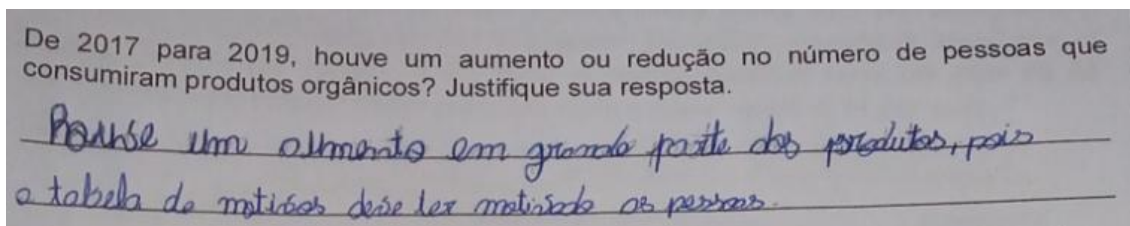 De 2017 para 2019, houve um aumento ou redução no número de pessoas que
consumiram produtos orgânicos? Justifique sua resposta.
um almento em grande parte dos produtos, pois
a tabela de motivos deve ter motivado as pessoas.